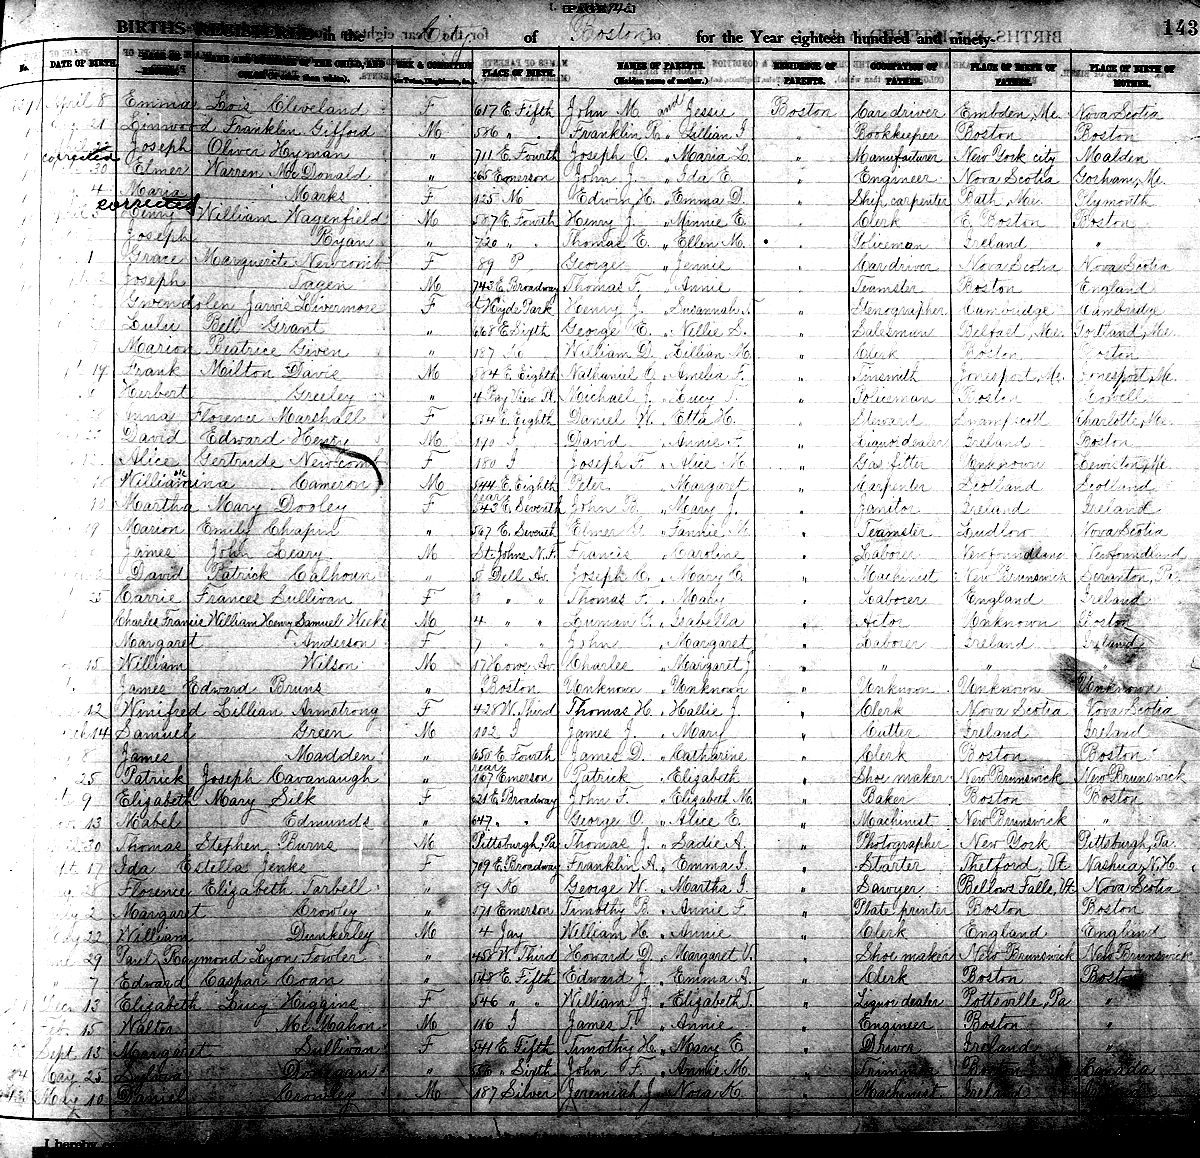 143
BIRTHS in the City of Boston for the Year eighteen hundred and ninety-
No. DATE OF BIRTH. SEX & CONDITION PLACE OF BIRTH. NAMES OF PARENTS. RESIDENCE OF PARENTS. OCCUPATION OF FATHER. PLACE OF BIRTH OF FATHER. PLACE OF BIRTH OF MOTHER.
April 8 Emma Lois Cleveland F 617 E Fifth John M. and Jessie Boston Car driver Embden, Me. Nova Scotia
21 Linwood Franklin Gifford M 586 " " Franklin R. " Lillian I. " Bookkeeper Boston Boston
corrected Joseph Oliver Hyman " 711 E Fourth Joseph O. " Maria L. " Manufacturer New York city Malden
30 Elmer Warren McDonald " 265 Emerson John J. " Ida E. " Engineer Nova Scotia Gorham, Me.
4 Maria Marks F 125 M Edwin H. " Emma D. " Ship carpenter Bath Me. Plymouth
corrected Henry William Wagenfield M 587 E Fourth Henry J. " Minnie E. " Clerk E. Boston Boston
Joseph Ryan " 720 " " Thomas E. " Ellen M. " Policeman Ireland "
1 Grace Marguerite Newcomb F 89 P George " Jennie " Car driver Nova Scotia Nova Scotia
Joseph Fagen M 743 E Broadway Thomas F. " Annie " Teamster Boston England
Gwendolen Jarvis Livermore F at Hyde Park Henry J. " Susannah J. " Stenographer Cambridge Cambridge
Lulu Bell Grant " 668 E Sixth George E. " Nellie S. " Salesman Belfast, Me. Portland, Me.
Marion Beatrice Given " 187 K William D. " Lillian M. " Clerk Boston Boston
14 Frank Milton Davis M 504 E. Eighth Nathaniel O. " Amelia F. " Tinsmith Jonesport, Me. Jonesport, Me.
Herbert Greeley " 4 Bay View Pl. Michael J. " Lucy T. " Policeman Boston Lowell
Anna Florence Marshall F 514 E. Eighth Daniel W. " Etta H. " Steward Swampscott Charlotte, Me.
David Edward Henry M 190 I David " Annie F. " Liquor dealer Ireland Boston
Alice Gertrude Newcomb F 180 I Joseph F. " Alice M. " Gas fitter Unknown Lewiston, Me.
Williamina Cameron M 544 E. Eighth Peter " Margaret " Carpenter Scotland Scotland
10 Martha Mary Dooley F rear 543 E. Seventh John B. " Mary J. " Janitor Ireland Ireland
19 Marion Emily Chapin " 567 E. Seventh Elmer G. " Fannie M. " Teamster Ludlow Nova Scotia
James John Leary M St. Johns N.F. Francis " Caroline " Laborer Newfoundland Newfoundland
David Patrick Calhoun " 5 Dell Av. Joseph C. " Mary C. " Machinist New Brunswick Scranton, Pa.
25 Carrie Frances Sullivan F 3 " " Thomas F. " Mary " Laborer England Ireland
Charles Francis William Henry Samuel Weeks M 4 " " Luman G. " Isabella " Actor Unknown Boston
Margaret Anderson F 7 " " John " Margaret " Laborer Ireland Ireland
15 William Wilson M 17 Howe Av. Charles " Margaret J. " " " "
James Edward Bruns " Boston Unknown " Unknown " Unknown Unknown Unknown
12 Winifred Lillian Armstrong F 428 W. Third Thomas H. " Hallie J. " Clerk Nova Scotia Nova Scotia
14 Samuel Green M 102 I James J. " Mary " Cutter Ireland Ireland
8 James Madden " 650 E. Fourth James D. " Katharine " Clerk Boston Boston
25 Patrick Joseph Cavanaugh " rear 167 Emerson Patrick " Elizabeth " Shoe maker New Brunswick New Brunswick
9 Elizabeth Mary Silk F 621 E Broadway John F. " Elizabeth M. " Baker Boston Boston
13 Mabel Edmunds " 647 " " George O. " Alice E. " Machinist New Brunswick "
30 Thomas Stephen Burns M Pittsburgh, Pa Thomas J. " Sadie A. " Photographer New York Pittsburgh, Pa.
17 Ida Estella Jenks F 709 E Broadway Franklin A. " Emma I. " Starter Thetford, Vt. Nashua, N.H.
28 Florence Elizabeth Tarbell " 89 K George W. " Martha I. " Sawyer Bellows Falls, Vt. Nova Scotia
2 Margaret Crowley " 571 Emerson Timothy B. " Annie F. " Plate printer Boston Boston
22 William Dunkerley M 4 Jay William H. " Annie " Clerk England England
29 Paul Raymond Lyon Fowler " 458 W. Third Howard D. " Margaret V. " Shoe maker New Brunswick New Brunswick
7 Edward Caspar Coan " 548 E. Fifth Edward J. " Emma A. " Clerk Boston Boston
13 Elizabeth Lucy Higgins F 546 " " William J. " Elizabeth T. " Liquor dealer Pottsville, Pa "
15 Walter McMahon M 116 I James W. " Annie " Engineer Boston "
Sept. 13 Margaret Sullivan F 541 E. Fifth Timothy H. " Mary E. " Driver Ireland "
May 25 Sylvia Donegan " " Sixth John F. " Annie M. " Trimmer Boston Canada
May 10 Daniel Crowley M 187 Silver Jeremiah J. " Nora K. " Machinist Ireland
I hereby